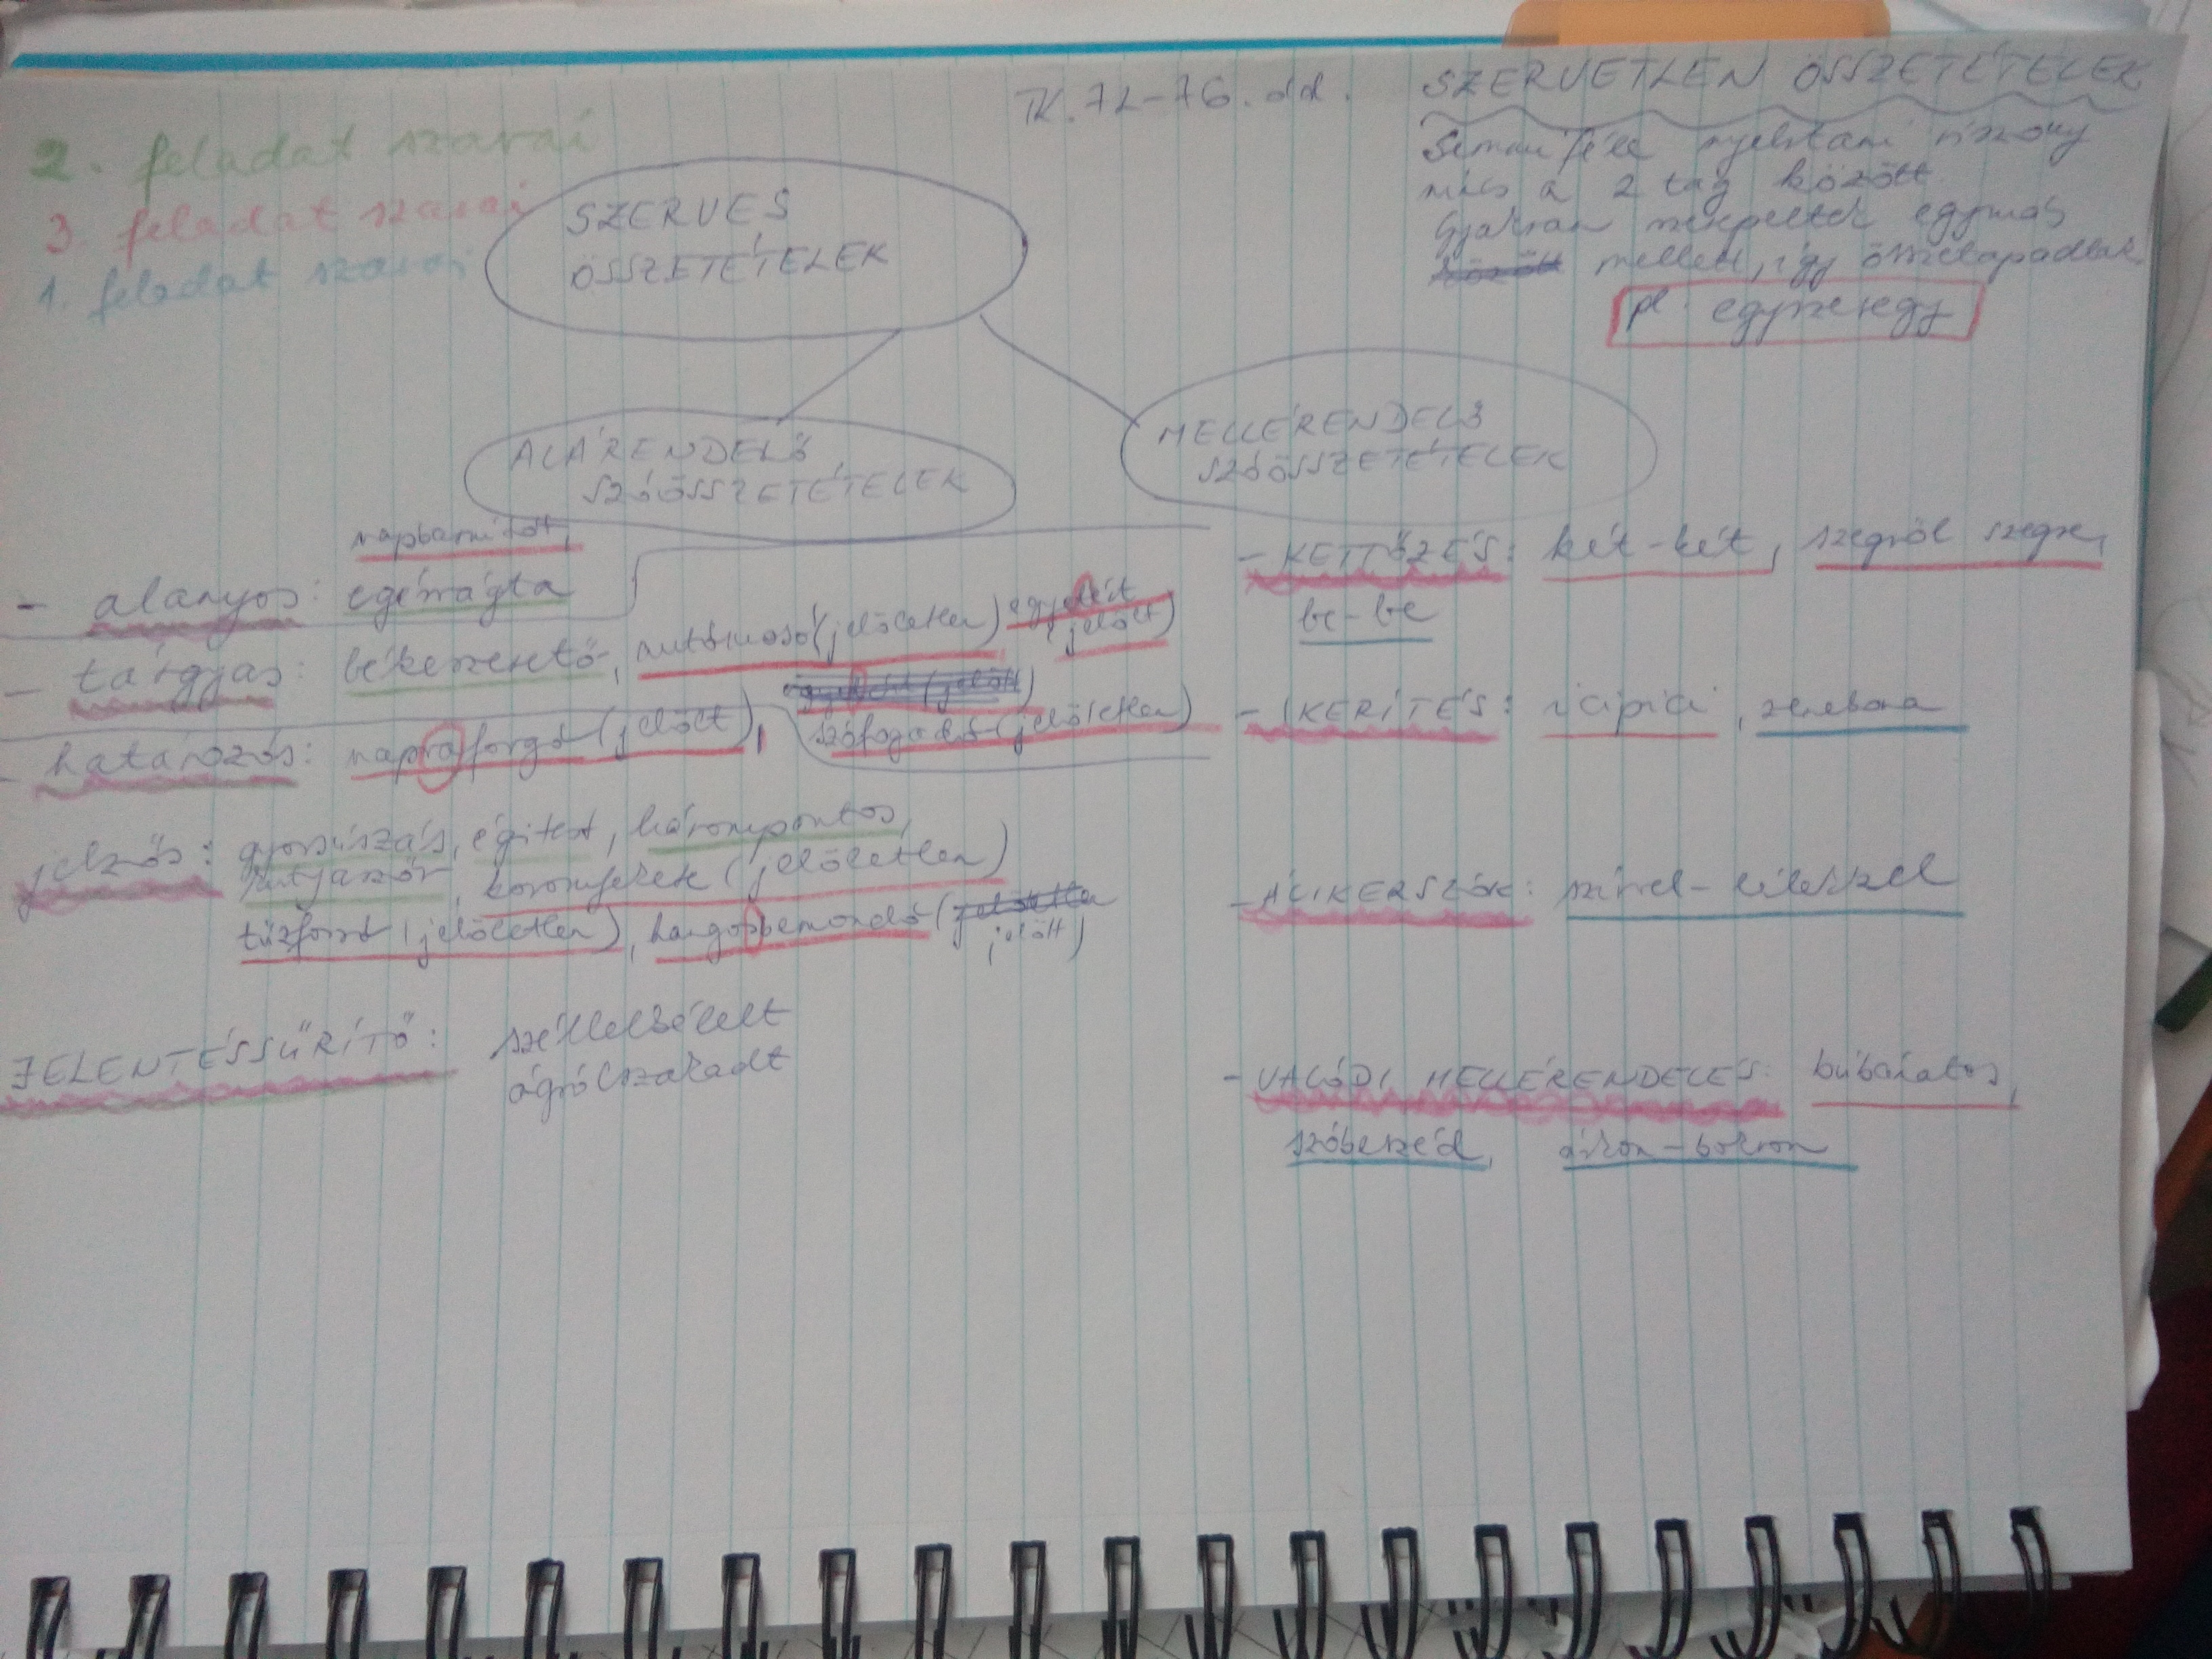 TK. 72-76. dd.
SZERVETLEN ÖSSZETÉTELEK
Semmiféle nyelvtani viszony
nincs a 2 tag között
Gyakran szerepeltek egymás
mellett, így összetapadtak.
pl. egyszeregy
2. feladat szavai
3. feladat szavai
1. feladat szavai
SZERVES
ÖSSZETÉTELEK
ALÁRENDELŐ
SZÓÖSSZETÉTELEK
MELLÉRENDELŐ
SZÓÖSSZETÉTELEK
napbarnított,
- alanyos: egérrágta
- tárgyas: békeszerető, autómosó (jelöletlen)
(jelölt)
- határozós: napraforgó (jelölt),
szófogadó (jelöletlen)
jelzős: gyorsúszás, égitest, hárompontos,
koronyerek (jelöletlen)
(jelöletlen), hangosbemondó (jelöletlen
jelölt)
JELENTÉSSŰRÍTŐ: széllelbélelt
ágrólszakadt
- KETTŐZÉS: két-két, szegről szegre,
be-be
- IKERÍTÉS: icipici, zenebona
- ÁLIKERSZÓK: szívvel-lélekkel
- VALÓDI MELLÉRENDELÉS: búbánatos,
szóbeszéd, árkon-bokron